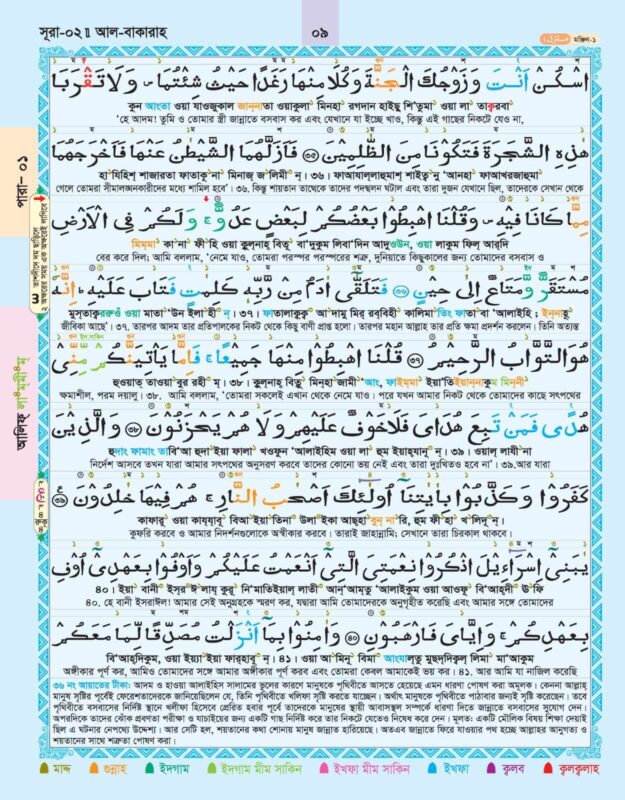 সূরা-০২॥ আল-বাকারাহ
০৯
মঞ্জিল-১
পারা- ০১
আলিফ্ লা~ম্মী~ম্
اسْكُنْ أَنْتَ وَزَوْجُكَ الْجَنَّةَ وَكُلَا مِنْهَا رَغَدًا حَيْثُ شِئْتُمَا وَلَا تَقْرَبَا
কুন আংতা ওয়া যাওজুকাল জান্নাতা ওয়াকুলা মিনহা রগাদান হাইছু শি'তুমা ওয়া লা তাক্বরবা
'হে আদম! তুমি ও তোমার স্ত্রী জান্নাতে বসবাস কর এবং যেখানে যা ইচ্ছে খাও, কিন্তু এই গাছের নিকটে যেও না,
هٰذِهِ الشَّجَرَةَ فَتَكُونَا مِنَ الظّٰلِمِيْنَ ﴿٣٥﴾ فَأَزَلَّهُمَا الشَّيْطٰنُ عَنْهَا فَأَخْرَجَهُمَا
হা যিহিশ্ শাজারতা ফাতাকূ না মিনাজ্ জ লিমী ন্। ৩৬। ফাআযাল্লাহুমাশ্ শাইত্ব নু 'আনহা ফাআখরজাহুমা
গেলে তোমরা সীমালঙ্ঘনকারীদের মধ্যে শামিল হবে'। ৩৬. কিন্তু শায়তান তাত্থেকে তাদের পদস্খলন ঘটাল এবং তারা দুজন যেখানে ছিল, তাদেরকে সেখান থেকে
مِمَّا كَانَا فِيْهِ وَقُلْنَا اهْبِطُوْا بَعْضُكُمْ لِبَعْضٍ عَدُوٌّ وَلَكُمْ فِي الْأَرْضِ
মিম্মা কা না ফী হি ওয়া কুলনাহ্ বিতূ বা'দুকুম লিবা'দিন আদুওউন, ওয়া লাকুম ফিল্ আর্‌দি
বের করে দিল; আমি বললাম, 'নেমে যাও, তোমরা পরস্পর পরস্পরের শত্রু, দুনিয়াতে কিছুকালের জন্য তোমাদের বসবাস ও
مُسْتَقَرٌّ وَمَتَاعٌ إِلٰى حِيْنٍ ﴿٣٦﴾ فَتَلَقّٰى اٰدَمُ مِنْ رَّبِّهٖ كَلِمٰتٍ فَتَابَ عَلَيْهِ إِنَّهٗ
মুস্তাক্বররুওঁ ওয়া মাতা 'উন ইলা হী ন্। ৩৭। ফাতালাক্বক্ব আ দামু মির্ রব্বিহী কালিমা তিং ফাতা বা 'আলাইহি। ইন্নাহূ
জীবিকা আছে'। ৩৭. তারপর আদম তার প্রতিপালকের নিকট থেকে কিছু বাণী প্রাপ্ত হলো। তারপর মহান আল্লাহ তার প্রতি ক্ষমা প্রদর্শন করলেন। তিনি অত্যন্ত
هُوَ التَّوَّابُ الرَّحِيْمُ ﴿٣٧﴾ قُلْنَا اهْبِطُوْا مِنْهَا جَمِيْعًا فَإِمَّا يَأْتِيَنَّكُمْ مِّنِّيْ
হুওয়াত্ তাওয়া বুর রহী ম্। ৩৮। কুলনাহ্ বিতূ মিনহা জামী 'আং, ফাইম্মা ইয়া'তিইয়ান্নাকুম মিন্নী
ক্ষমাশীল, পরম দয়ালু। ৩৮. আমি বললাম, 'তোমরা সকলেই এখান থেকে নেমে যাও। পরে যখন আমার নিকট থেকে তোমাদের কাছে সৎপথের
هُدًى فَمَنْ تَبِعَ هُدَايَ فَلَا خَوْفٌ عَلَيْهِمْ وَلَا هُمْ يَحْزَنُوْنَ ﴿٣٨﴾ وَالَّذِيْنَ
হুদাং ফামাং তাবি'আ হুদা ইয়া ফালা খওফুন 'আলাইহিম ওয়া লা হুম ইয়াহ্যানূ ন্। ৩৯। ওয়াল্ লাযী না
নির্দেশ আসবে তখন যারা আমার সৎপথের অনুসরণ করবে তাদের কোনো ভয় নেই এবং তারা দুঃখিতও হবে না'। ৩৯.আর যারা
كَفَرُوْا وَكَذَّبُوْا بِاٰيٰتِنَا أُولٰئِكَ أَصْحٰبُ النَّارِ هُمْ فِيْهَا خٰلِدُوْنَ ﴿٣٩﴾
কাফারূ ওয়া কায্যাবূ বিআ ইয়া তিনা উলা ইকা আছ্হা বুন্ না রি, হুম ফী হা খ লিদূ ন্।
কুফরি করবে ও আমার নিদর্শনগুলোকে অস্বীকার করবে। তারাই জাহান্নামি; সেখানে তারা চিরকাল থাকবে।
يٰبَنِيْ إِسْرَاءِيْلَ اذْكُرُوْا نِعْمَتِيَ الَّتِيْ أَنْعَمْتُ عَلَيْكُمْ وَأَوْفُوْا بِعَهْدِيْ أُوْفِ
৪০। ইয়া বানী ইস্র ঈ লায্ কুরূ নি'মাতিইয়াল্ লাতী আন্'আম্তু 'আলাইকুম ওয়া আওফূ বি'আহ্দী ঊ ফি
৪০. হে বানী ইসরাঈল! আমার সেই অনুগ্রহকে স্মরণ কর, যদ্বারা আমি তোমাদেরকে অনুগৃহীত করেছি এবং আমার সঙ্গে তোমাদের
بِعَهْدِكُمْ وَإِيَّايَ فَارْهَبُوْنِ ﴿٤٠﴾ وَاٰمِنُوْا بِمَا أَنْزَلْتُ مُصَدِّقًا لِّمَا مَعَكُمْ
বি'আহ্দিকুম, ওয়া ইয়্যা ইয়া ফার্‌হাবূ ন্। ৪১। ওয়া আ মিনূ বিমা আংযাল্তু মুছদ্দিক্বল্ লিমা মা'আকুম
অঙ্গীকার পূর্ণ কর, আমিও তোমাদের সঙ্গে আমার অঙ্গীকার পূর্ণ করব এবং তোমরা কেবল আমাকেই ভয় কর। ৪১. আর আমি যা নাজিল করেছি
৩৬ নং আয়াতের টীকা: আদম ও হাওয়া আলাইহিস সালামের ভুলের কারণে মানুষকে পৃথিবীতে আসতে হয়েছে এমন ধারণা পোষণ করা অমূলক। কেননা আল্লাহ
মানুষ সৃষ্টির পূর্বেই ফেরেশতাদেরকে জানিয়েছিলেন যে, তিনি পৃথিবীতে খলিফা সৃষ্টি করতে যাচ্ছেন। অর্থাৎ মানুষকে পৃথিবীতে পাঠাবার জন্যই সৃষ্টি করেছেন। তবে
পৃথিবীতে বসবাসের নির্দিষ্ট স্থানে খলীফা হিসেবে প্রেরিত হবার পূর্বে তাদেরকে মানুষের স্থায়ী আবাসস্থল সম্পর্কে ধারণা দিতে জান্নাতে বসবাসের সুযোগ দেন।
অপরদিকে তাদের ঝোঁক প্রবণতা পরীক্ষা ও যাচাইয়ের জন্য একটি গাছ নির্দিষ্ট করে তার নিকটে যেতেও নিষেধ করে দেন। মূলত: একটি মৌলিক বিষয় শিক্ষা দেয়াই
ছিল এ ঘটনার নেপথ্যে উদ্দেশ্য। আর সেটি হল, শয়তানের কথা শোনায় মানুষ জান্নাত হারিয়েছে। অতএব জান্নাতে ফিরে যাওয়ার পথ হচ্ছে আল্লাহর আনুগত্য ও
শয়তানের সাথে শত্রুতা পোষণ করা।
মাদ্দ গুন্নাহ ইদগাম ইদগাম মীম সাকিন ইখফা মীম সাকিন ইখফা ক্বলব ক্বলক্বলাহ